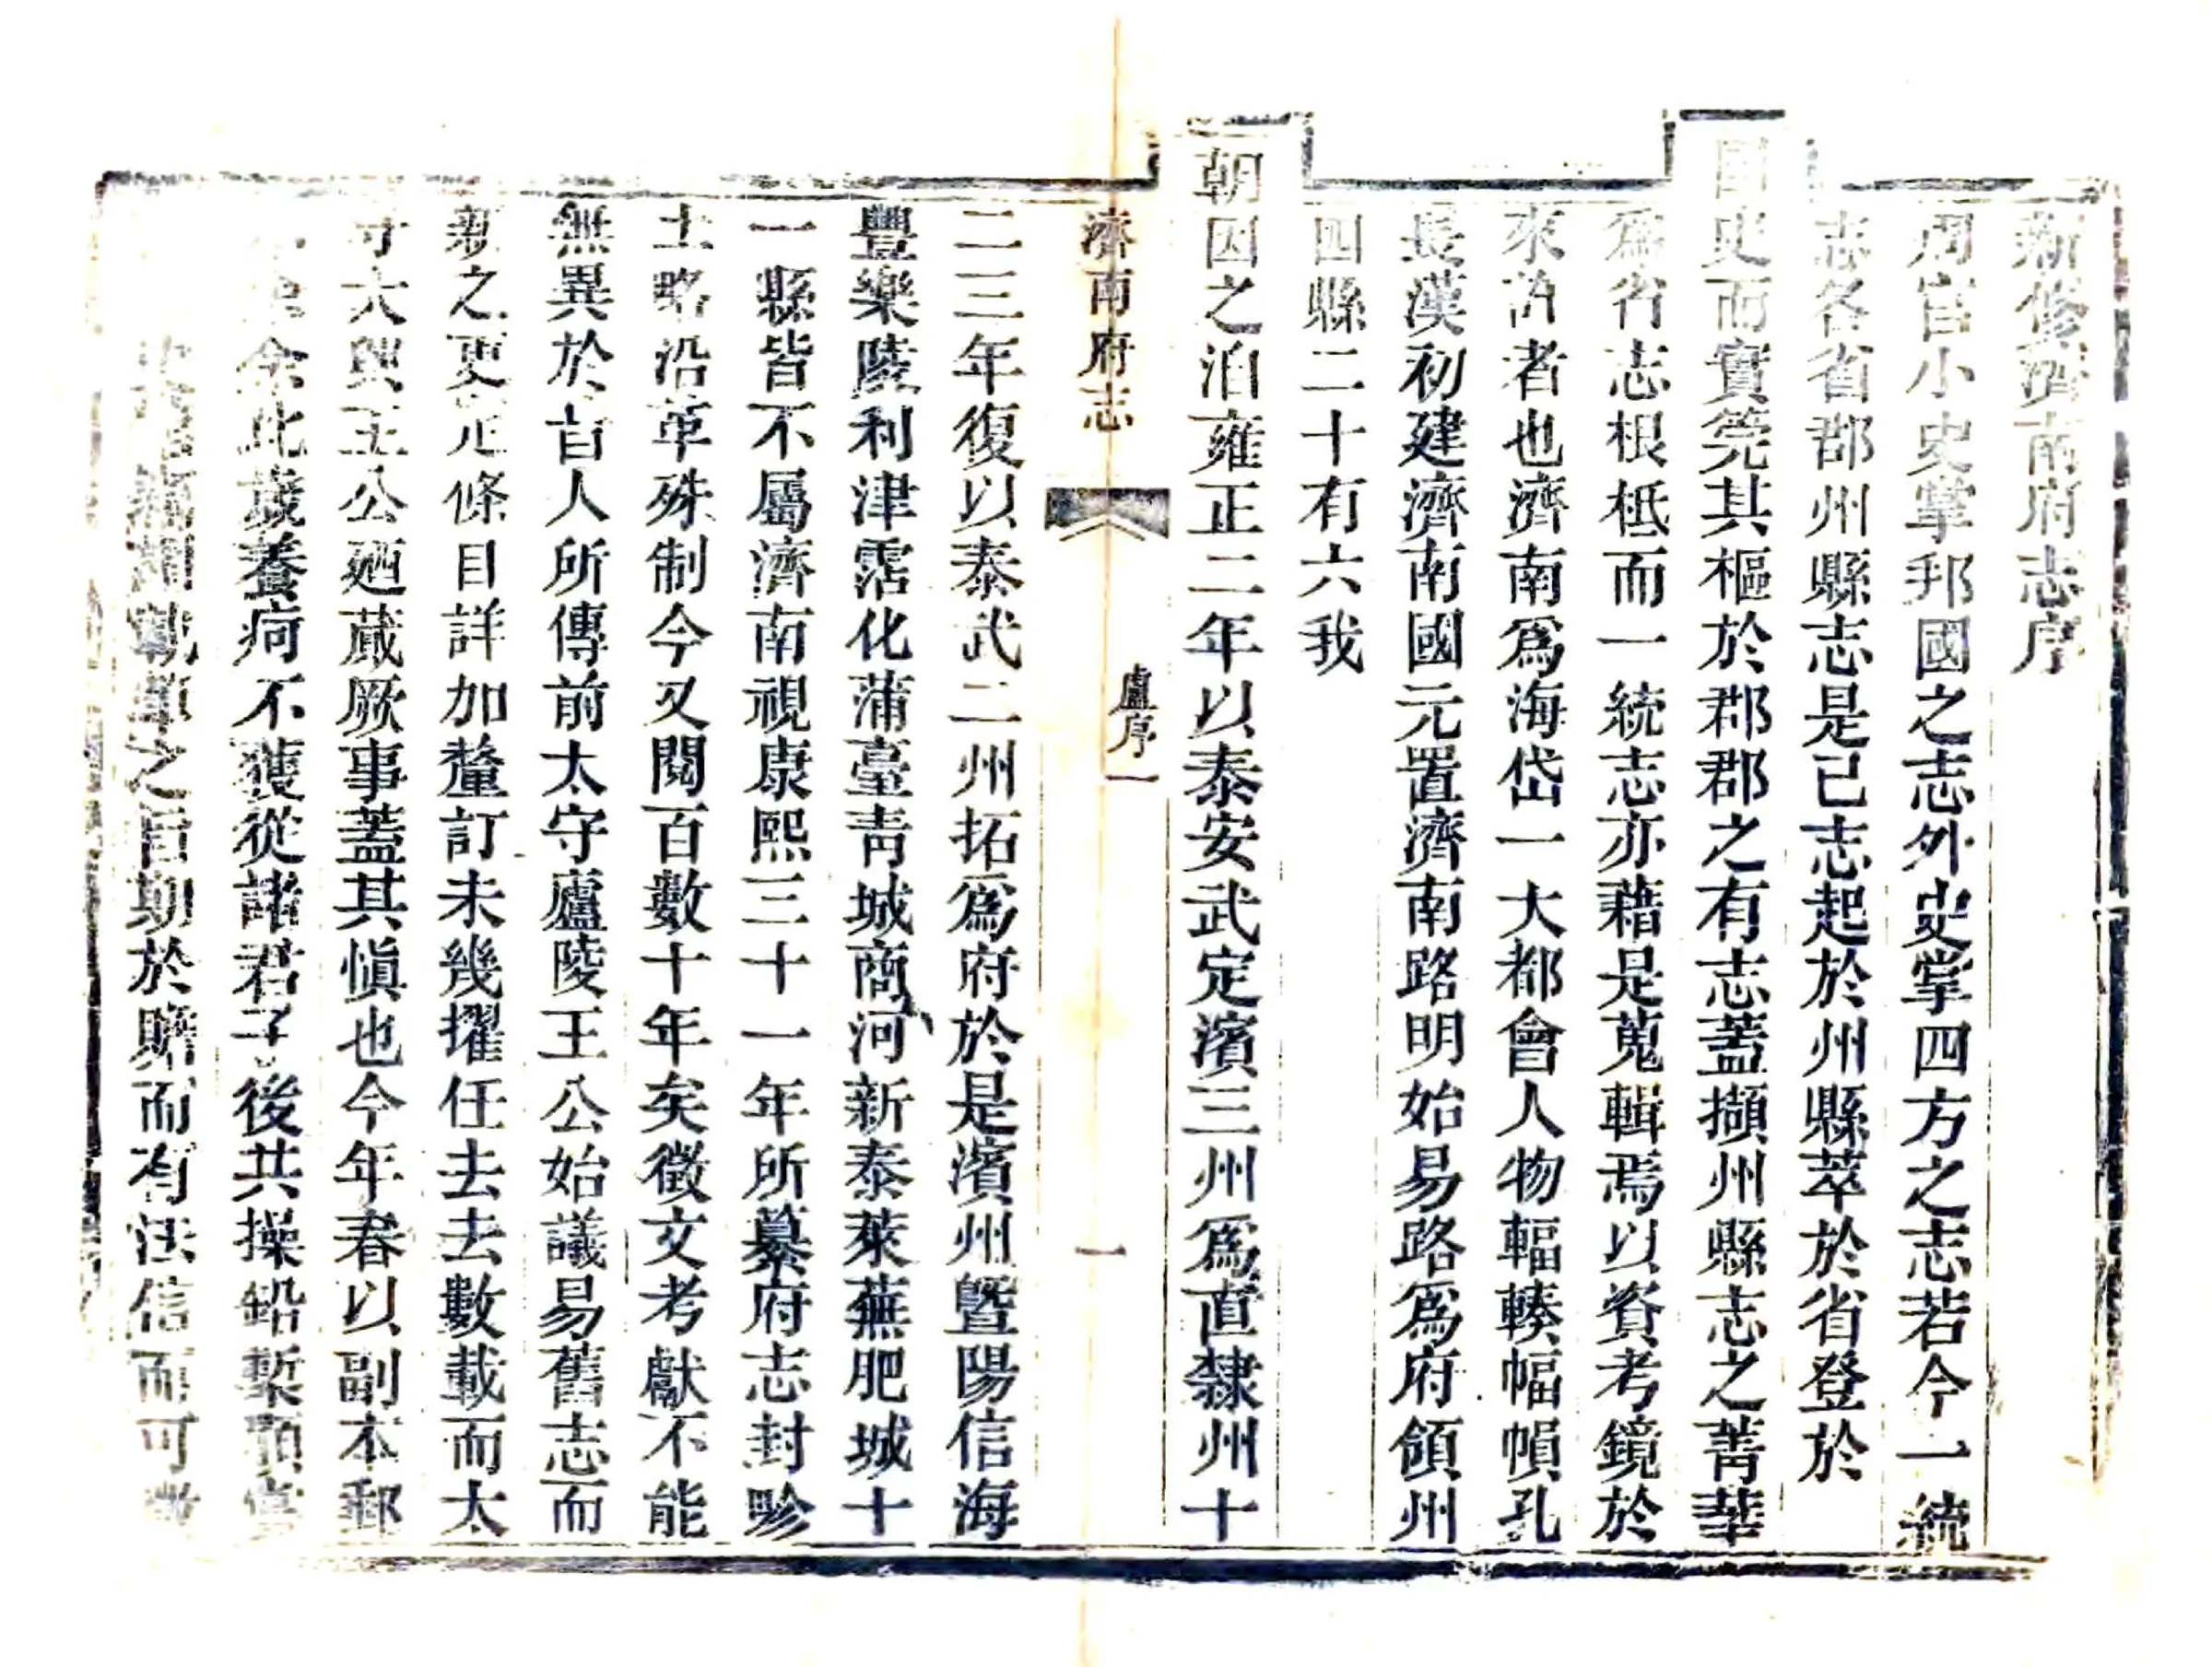 新修濟南府志序
周官小史掌邦國之志外史掌四方之志若今一統
志各省郡州縣志是已志起於州縣萃於省登於
國史而實筦其樞於郡郡之有志蓋擷州縣志之菁華
爲省志根柢而一統志亦藉是蒐輯焉以資考鏡於
來許者也濟南爲海岱一大都會人物輻輳幅幀孔
長漢初建濟南國元置濟南路明始易路爲府領州
四縣二十有六我
朝因之洎雍正二年以泰安武定濱三州爲直隸州十
濟南府志
盧序一
一
二三年復以泰武二州拓爲府於是濱州曁陽信海
豐樂陵利津霑化蒲臺青城商河新泰萊蕪肥城十
一縣皆不屬濟南視康熙三十一年所纂府志封畛
土略沿革殊制今又閱百數十年矣徵文考獻不能
無異於昔人所傳前太守廬陵王公始議易舊志而
新之更定條目詳加釐訂未幾擢任去去數載而太
守大興王公廼蕆厥事蓋其愼也今年春以副本郵
余此歲養疴不獲從諸君子後共操鉛槧顧嘗
之旨期於贍而有法信而可徵